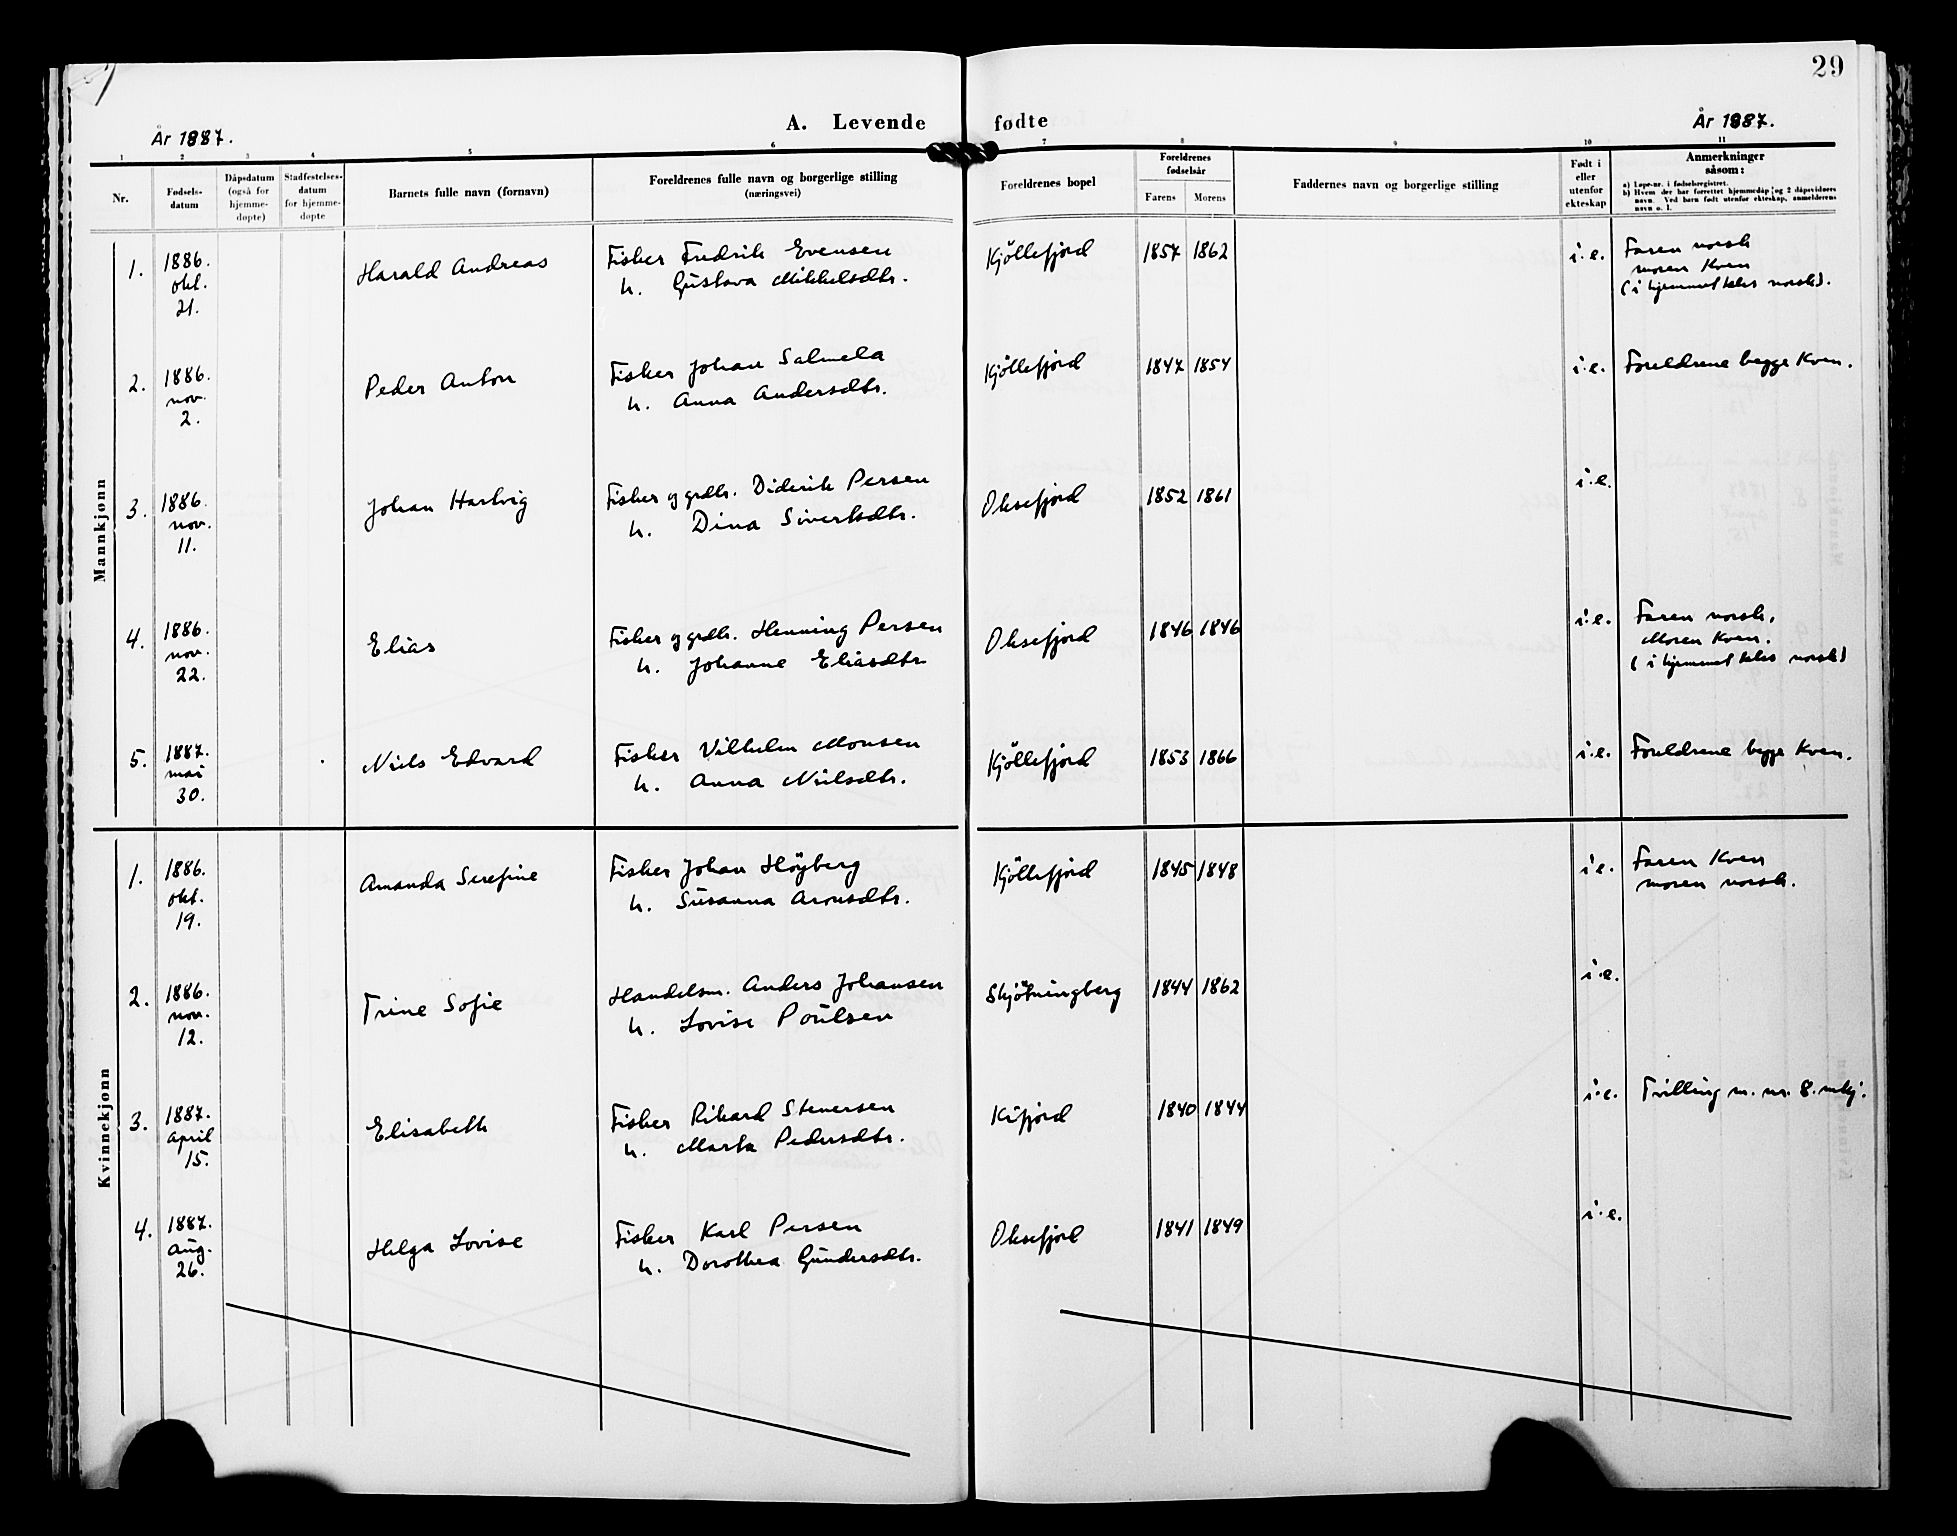 29
År 1887.
A. Levende fødte
År 1887.
1 2 3 4 5 6 7 8 9 10 11
Nr.
Fødsels-
datum
Dåpsdatum
(også for
hjemme-
døpte)
Stadfestelses-
datum
for hjemme-
døpte
Barnets fulle navn (fornavn)
Foreldrenes fulle navn og borgerlige stilling
(næringsvei)
Foreldrenes bopel
Foreldrenes
fødselsår
Farens Morens
Faddernes navn og borgerlige stilling
Født i
eller
utenfor
ekteskap
Anmerkninger
såsom:
a) Løpe-nr. i fødselsregistret.
b) Hvem der har forrettet hjemmedåp og 2 dåpsvidners
navn. Ved barn født utenfor ekteskap, anmelderens
navn o. l.
Mannkjønn
1. 1886. okt. 21. Harald Andreas Fisker Fredrik Evensen Kjöllefjord 1857 1862 i.e. Faren norsk
h. Gustava Mikkelsdtr. moren Kven
(i hjemmet tales norsk).
2. 1886. nov. 2. Peder Anton Fisker Johan Salmela Kjöllefjord 1847 1854 i.e. Foreldrene begge Kven.
h. Anna Andersdtr.
3. 1886. nov. 11. Johan Hartvig Fisker og grdbr. Diderik Persen Oksefjord 1852 1861 i.e.
h. Dina Sivertsdtr.
4. 1886. nov. 22. Elias Fisker og grdbr. Henning Persen Oksefjord 1846 1846 i.e. Faren norsk,
h. Johanne Eliasdtr Moren Kven.
(i hjemmet tales norsk)
5. 1887. mai 30. Niels Edvard Fisker Vilhelm Monsen Kjöllefjord 1853 1866 i.e. Foreldrene begge Kven.
h. Anna Nielsdtr.
Kvinnekjønn
1. 1886. okt. 19. Amanda Serefine Fisker Johan Höyberg Kjöllefjord 1845 1848 i.e. Faren Kven
h. Susanna Aronsdtr. moren norsk.
2. 1886. nov. 12. Trine Sofie Handelsm. Anders Johansen Skjötningberg 1844 1862 i.e.
h. Lovise Poulsen
3. 1887. april 15. Elisabeth Fisker Rikard Stenersen Kifjord 1840 1844 i.e. Tvilling m. nr. 8. mkj.
h. Marta Pedersdtr.
4. 1887. aug. 26. Helga Lovise Fisker Karl Persen Oksefjord 1841 1849 i.e.
h. Dorothea Gundersdtr.